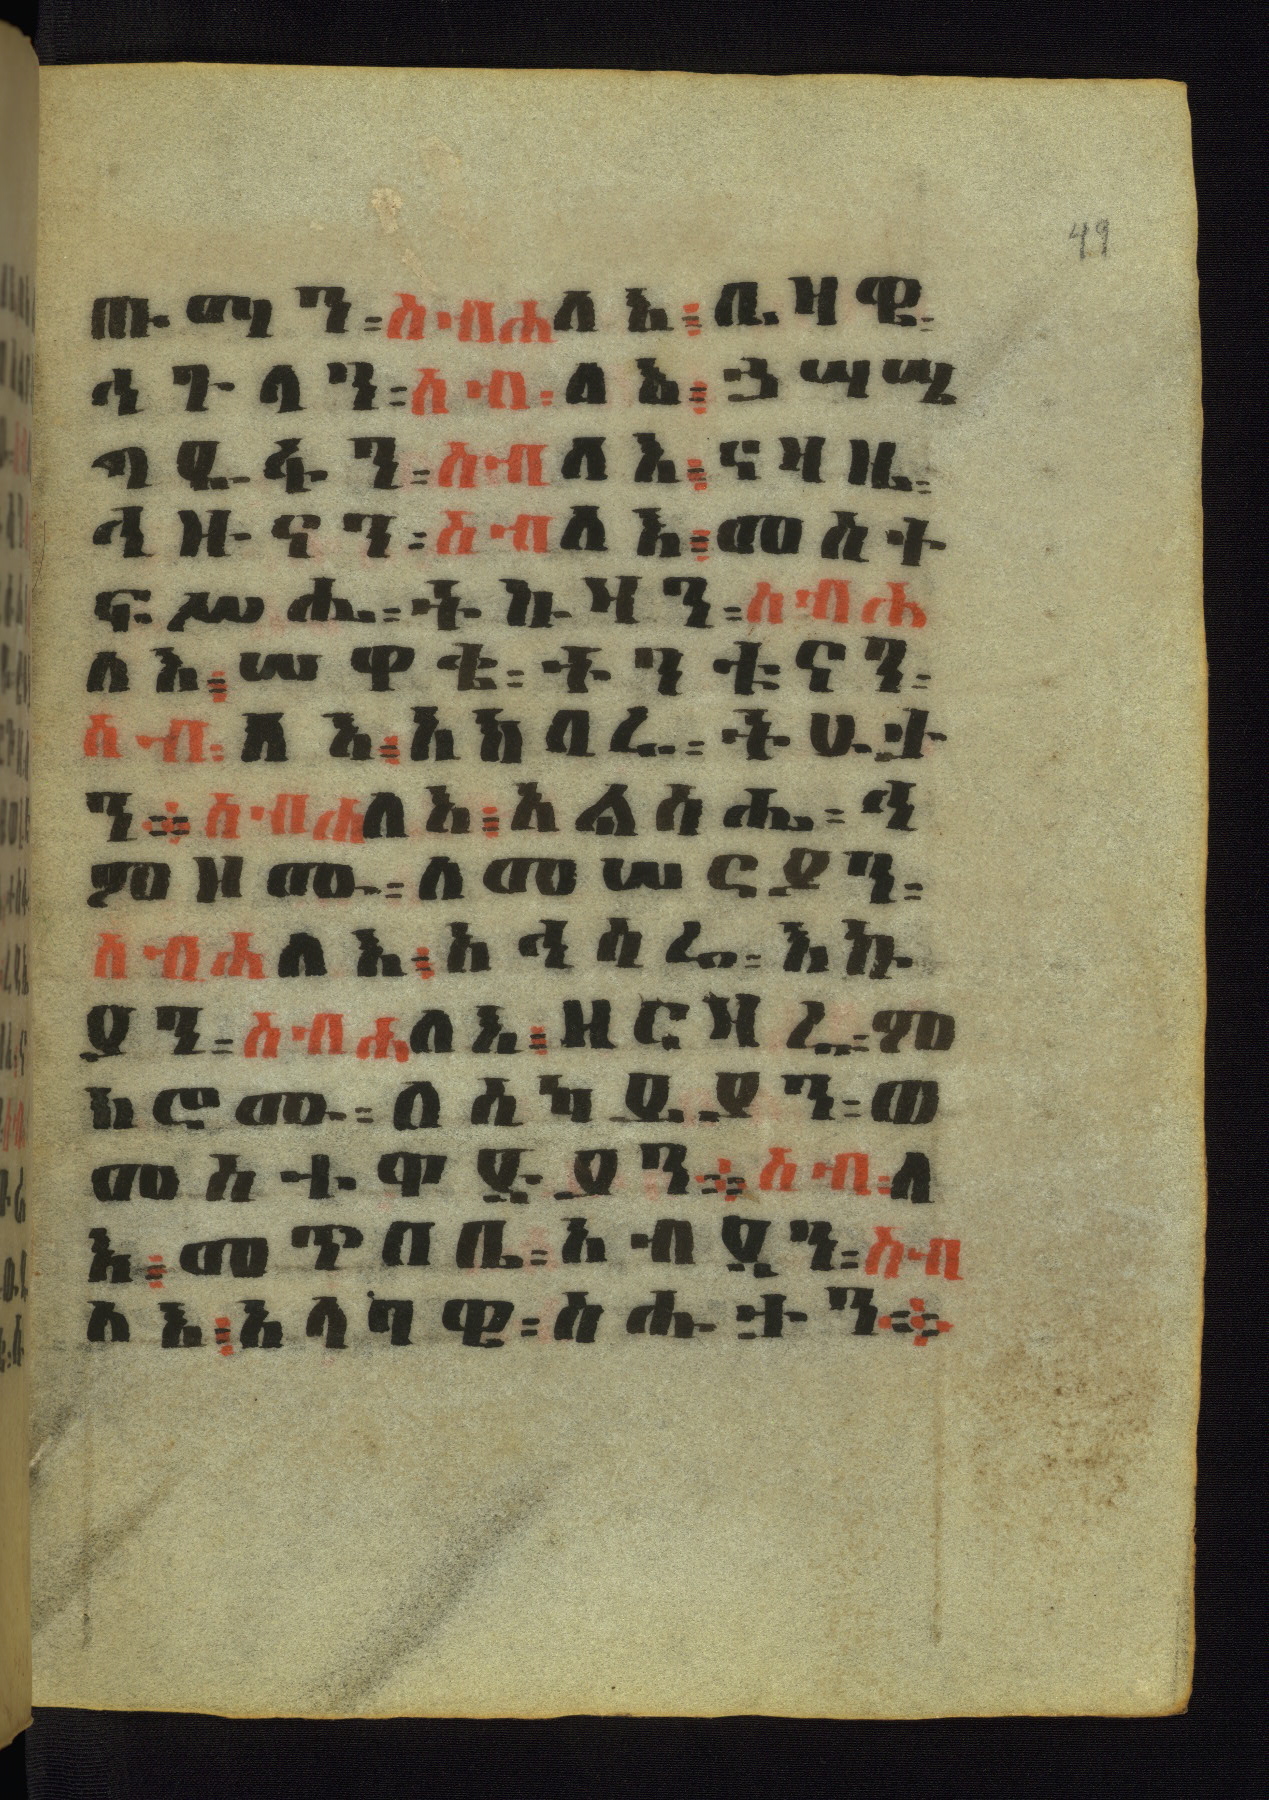 ጡማን፡ስብሐለእ፡ቤዛዊ፡
ኅጉላን፡ስብ፡ለእ፡ኃሣሤ
ግዱፋን፡ስብለእ፡ናዛዜ፡
ኅዙናን፡ስብለእ፡መስተ
ፍሥሒ፡ትኩዛን፡ስብሐ
ለእ፡ሠዋቂ፡ትንቱናን፡
ስብ፡ለእ፡አክባሪ፡ትሁታ
ን፡፡ስብሐለእ፡አልሳሒ፡ኅ
ምዝመሙ፡ለመሠርያን፡
ስብሐለእ፡አኅሳሪ፡እኩ
ያን፡ስብሐለእ፡ዘርዛሪ፡ም
ክሮሙ፡ለእካይያን፡ወ
መስተቃይያን፡፡ስብ፡ለ
እ፡መጥበቢ፡አብዳን፡ስብ
ለእ፡አላባዊ፡ስሑታን፡፡
49